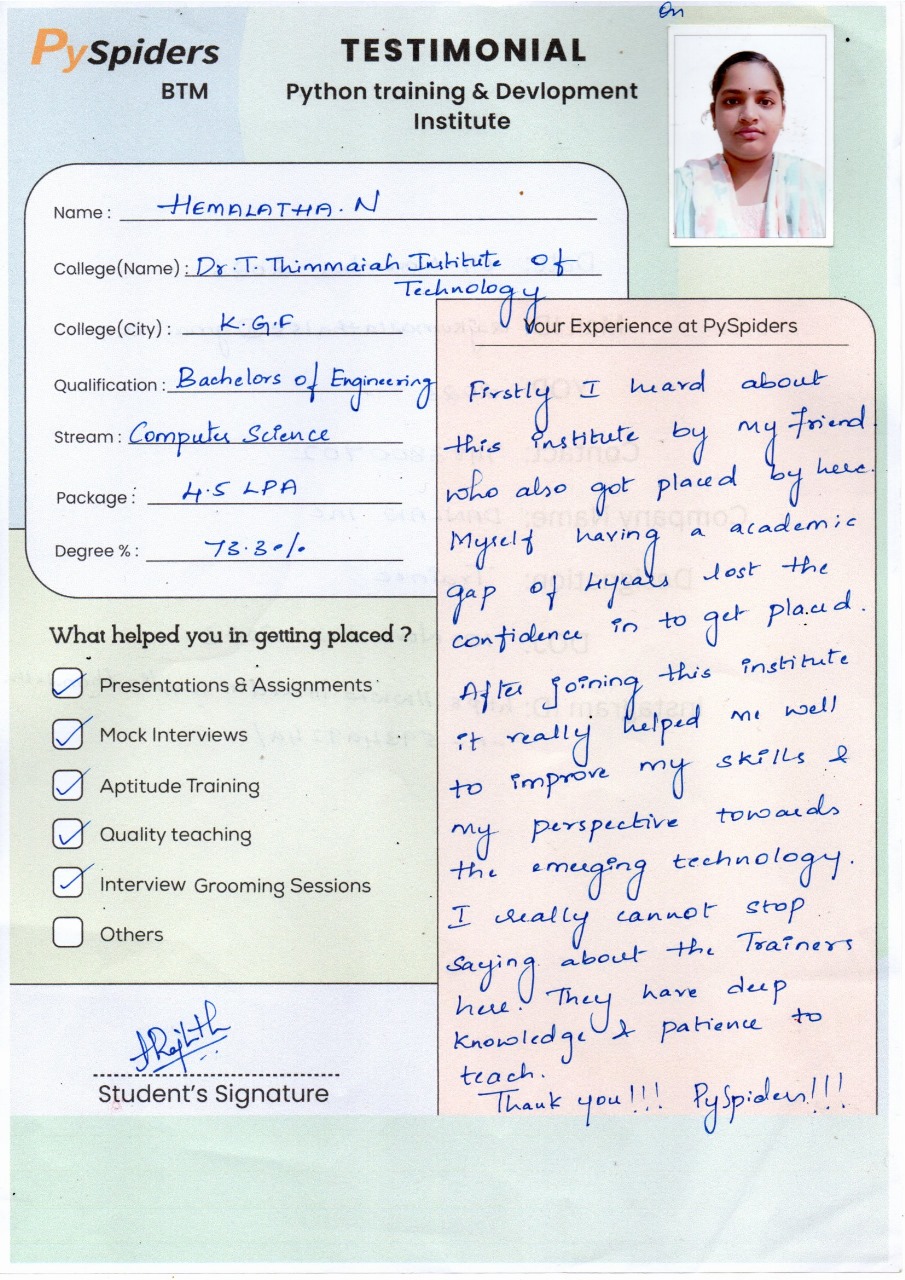 On
PySpiders
BTM
TESTIMONIAL
Python training & Devlopment
Institute
Name : HEMALATHA. N
College(Name) : Dr. T. Thimmaiah Institute of
Technology
College(City) : K.G.F
Qualification : Bachelors of Engineering
Stream : Computer Science
Package : 4.5 LPA
Degree % : 73.3%
What helped you in getting placed ?
Presentations & Assignments
Mock Interviews
Aptitude Training
Quality teaching
Interview Grooming Sessions
Others
Student's Signature
Your Experience at PySpiders
Firstly I heard about
this institute by my friend
who also got placed by here.
Myself having a academic
gap of 4years lost the
confidence in to get placed.
After joining this institute
it really helped me well
to improve my skills &
my perspective towards
the emerging technology.
I really cannot stop
saying about the Trainers
here. They have deep
knowledge & patience to
teach.
Thank you!!! PySpiders!!!